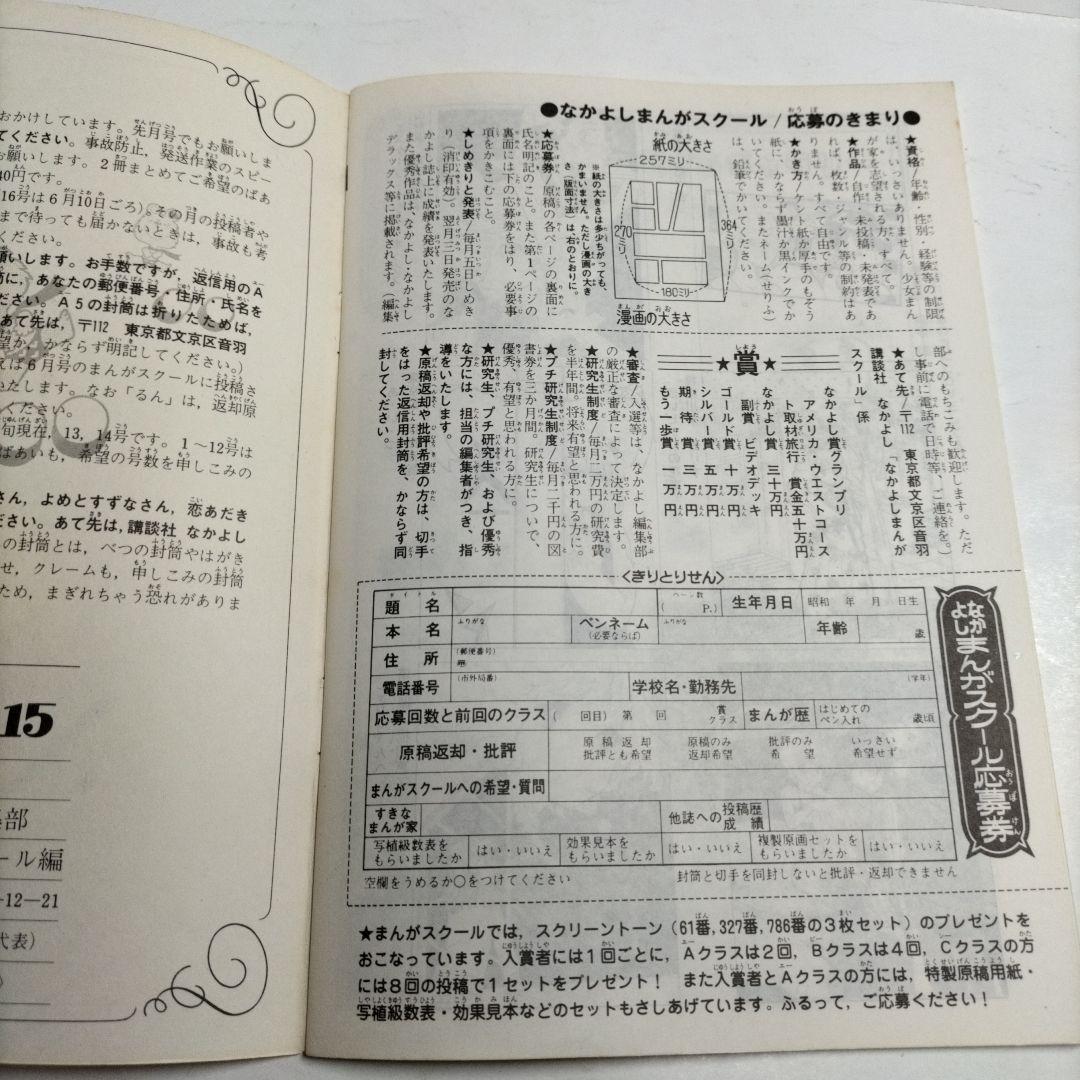 おかけしています。先月号でもお願いしま
てください。事故防止，発送作業のスピー
お願いします。２冊まとめてご希望のばあ
40円です。
16号は６月10日ごろ)。その月の投稿者や
まで待っても届かないときは，事故も考
ください。
願いします。お手数ですが，返信用のＡ
筒に，あなたの郵便番号・住所・氏名を
ださい。Ａ５の封筒は折りたためば，
あて先は，〒112 東京都文京区音羽
望か，かならず明記してください。)
えば６月号のまんがスクールに投稿さ
いたします。なお「るん」は，返却原
ください。
旬現在，13，14号です。１〜12号は
ばあいも，希望の号数を申しこみの
さん，よめとすずなさん，恋あだき
ださい。あて先は，講談社 なかよし
の封筒とは，べつの封筒やはがき
せ，クレームも，申しこみの封筒
ため，まぎれちゃう恐れがありま
15
部
ール編
-12-21
代表)
●なかよしまんがスクール/応募のきまり●
★資格/年齢・性別・経験等の制限
は、いっさいありません。少女まん
が家を志望される方、すべて。
★作品/自作・未投稿・未発表であ
れば、枚数・ジャンル等の制約はあ
りません。すべて自由です。
★かき方/ケント紙か厚手のもぞう
紙に、かならず墨汁か黒インクでか
いてください。またネーム(せりふ)
は、鉛筆でかいてください。
紙の大きさ
257ミリ
364ミリ
270ミリ
180ミリ
漫画の大きさ
※紙の大きさは多少ちがっても、
かまいません。ただし漫画の大き
さ(版面寸法)は、右のとおりに。
★応募券/原稿の各ページの裏面に
氏名明記のこと。また第１ページの
裏面には下の応募券をはり、必要事
項をかきこむこと。
★しめきりと発表/毎月五日しめき
り(消印有効)。翌月三日発売のな
かよし誌上に成績を発表いたします。
また優秀作品は、なかよし・なかよし
デラックス等に掲載されます。(編集
部へのもちこみも歓迎します。ただ
し事前に電話で日時等、ご連絡を。)
★あて先/〒112 東京都文京区音羽
講談社 なかよし「なかよしまんが
スクール」係
★賞★
なかよし賞グランプリ
アメリカ・ウエストコース
ト取材旅行 賞金五十万円
なかよし賞 三十万円
副賞 ビデオデッキ
ゴールド賞 十万円
シルバー賞 五万円
期待賞 三万円
もう一歩賞 一万円
★審査/入選等は、なかよし編集部
の厳正な審査によって決定します。
★研究生制度/毎月二万円の研究費
を半年間。将来有望と思われる方に。
★プチ研究生制度/毎月二千円の図
書券を三か月間。研究生についで、
優秀、有望と思われる方に。
★研究生、プチ研究生、および優秀
な方には、担当の編集者がつき、指
導をいたします。
★原稿返却や批評希望の方は、切手
をはった返信用封筒を、かならず同
封してください。
〈きりとりせん〉
なかよしまんがスクール応募券
題名 タイトル
ページ数
( P.)
生年月日
昭和 年 月 日生
本名
ふりがな
ペンネーム
(必要ならば)
ふりがな
年齢
歳
住所
(郵便番号)
〒
電話番号
(市外局番)
学校名・勤務先
(学年)
応募回数と前回のクラス
( 回目) 第 回 賞 クラス
まんが歴
はじめての ペン入れ 歳頃
原稿返却・批評
原稿返却 批評とも希望
原稿のみ 返却希望
批評のみ 希望
いっさい 希望せず
まんがスクールへの希望・質問
すきな まんが家
他誌への投稿歴 成績
写植級数表を もらいましたか
はい・いいえ
効果見本を もらいましたか
はい・いいえ
複製原画セットを もらいましたか
はい・いいえ
空欄をうめるか○をつけてください
封筒と切手を同封しないと批評・返却できません
★まんがスクールでは，スクリーントーン(61番,327番,786番の３枚セット)のプレゼントを
おこなっています。入賞者には１回ごとに，Ａクラスは２回，Ｂクラスは４回，Ｃクラスの方
には８回の投稿で１セットをプレゼント！ また入賞者とＡクラスの方には，特製原稿用紙・
写植級数表・効果見本などのセットもさしあげています。ふるって，ご応募ください！